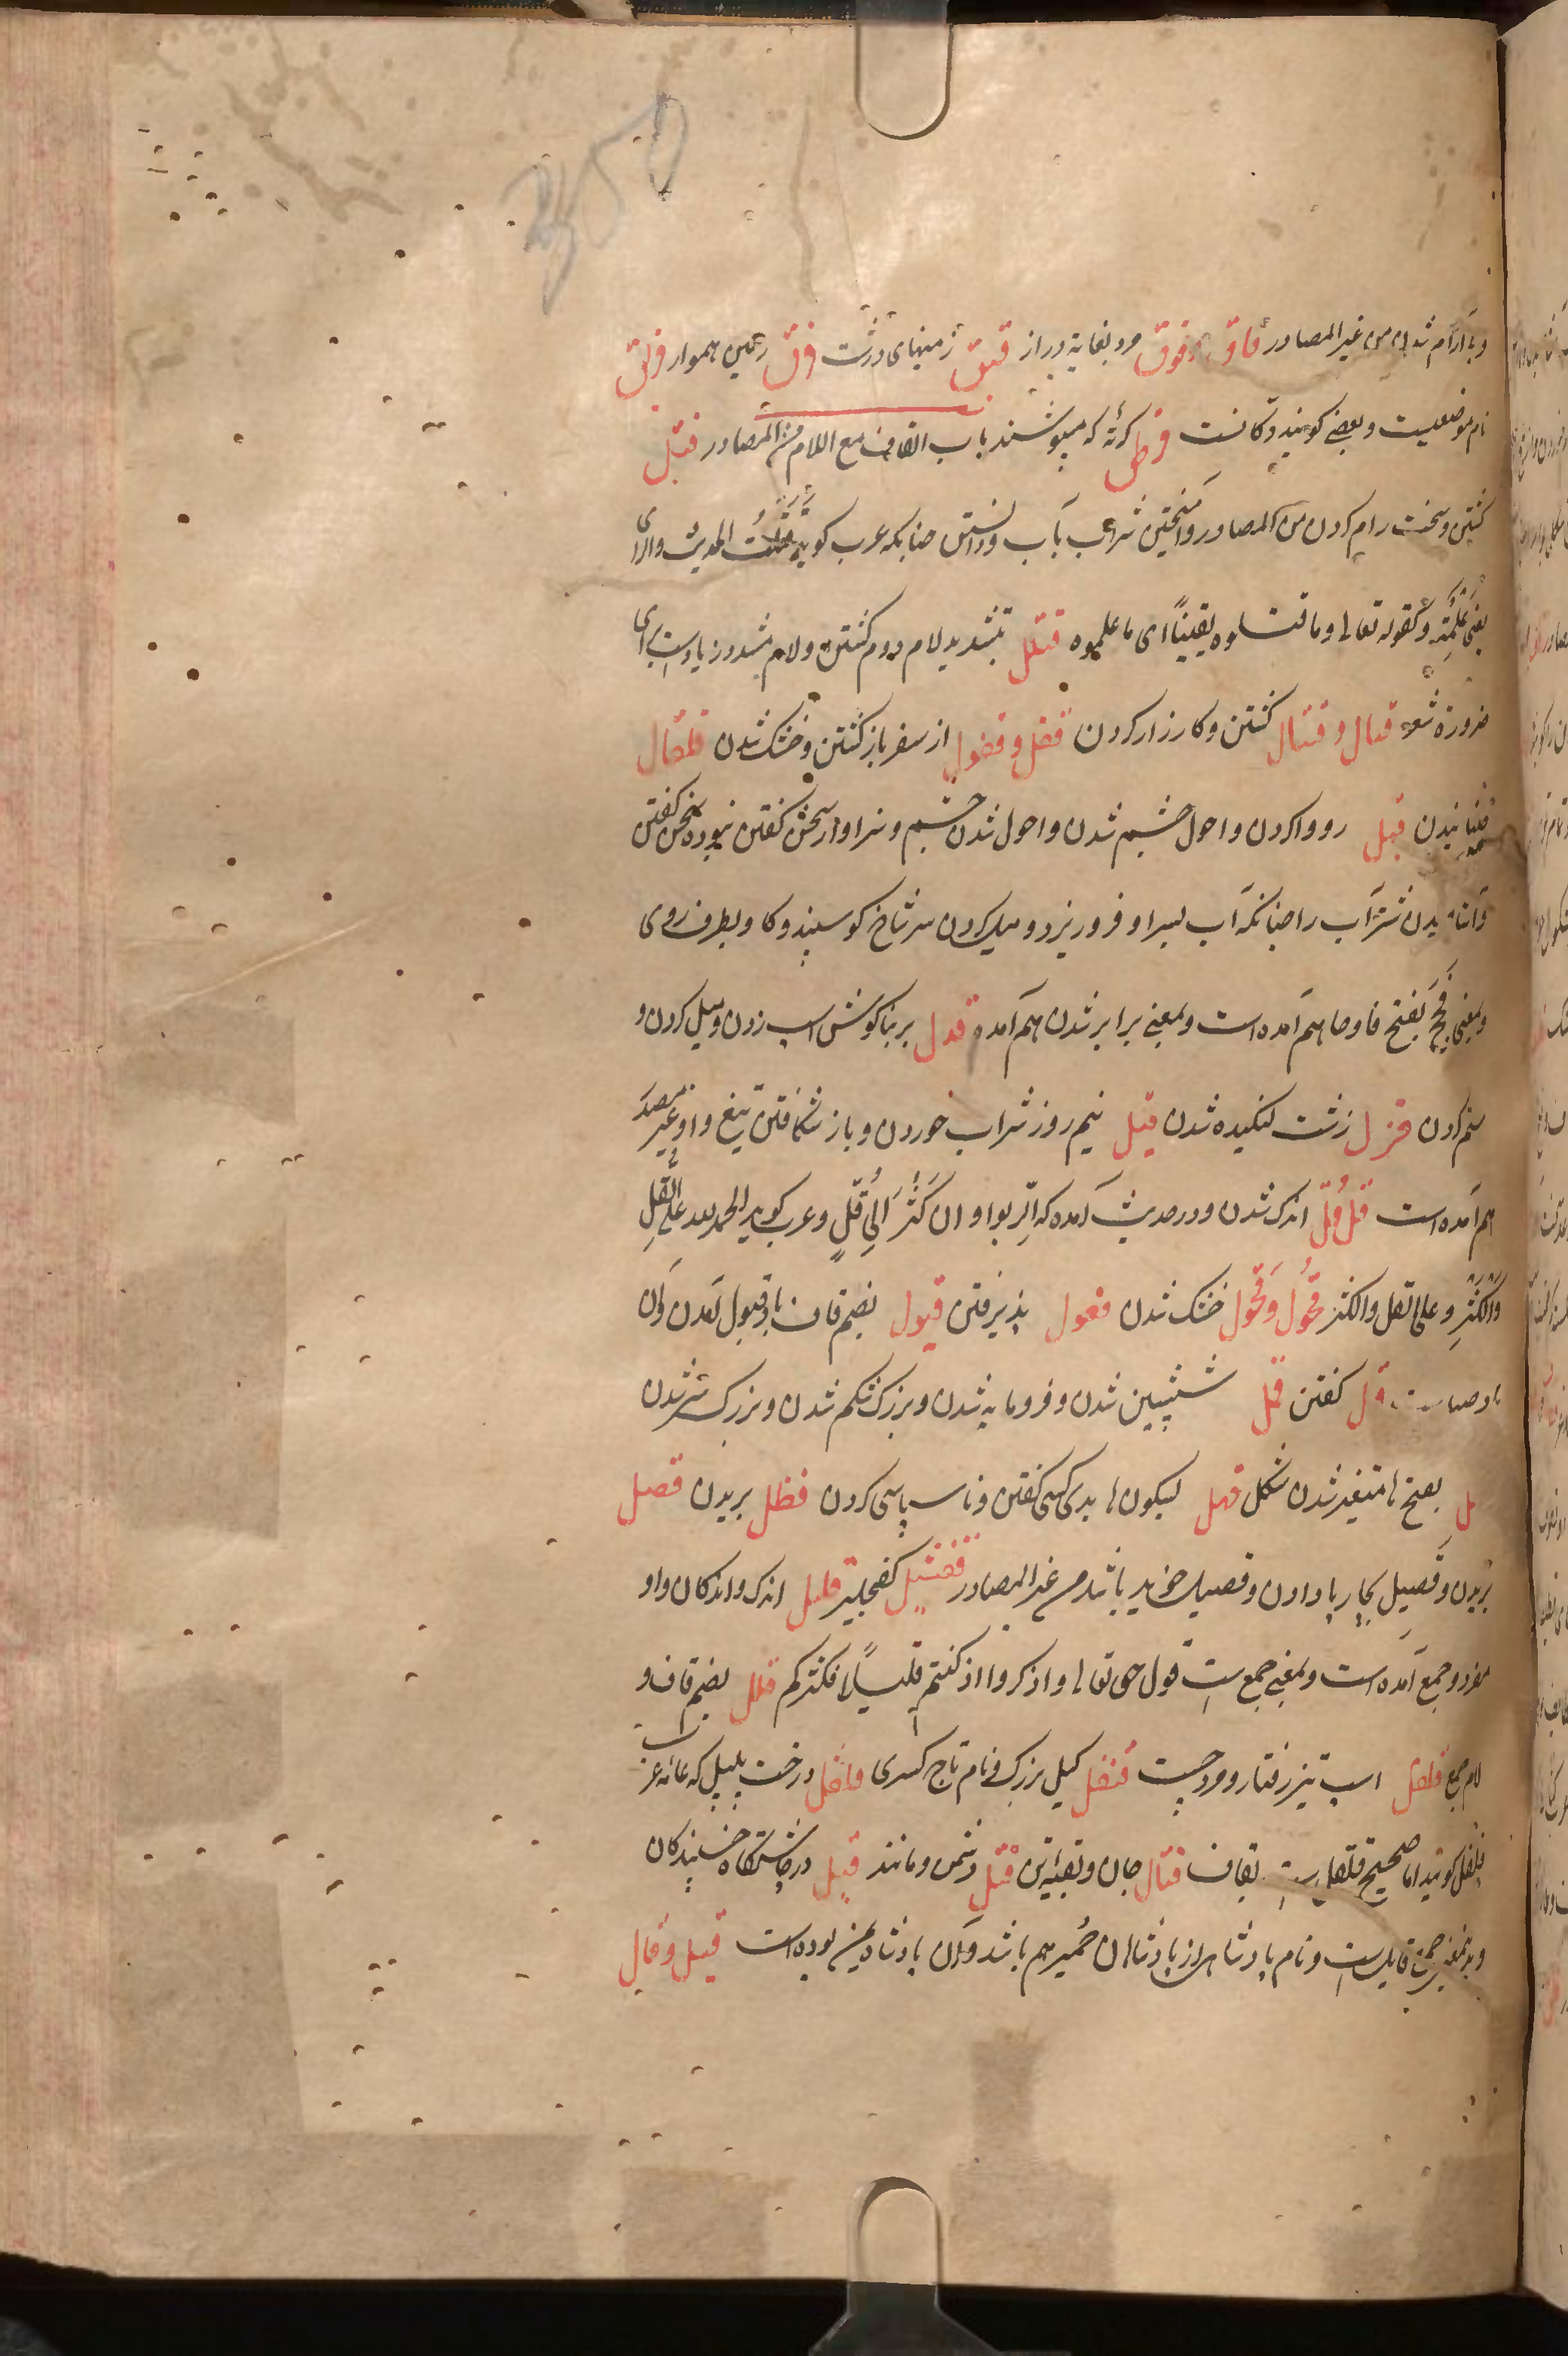 و با آرام شدن من غیر المصادر قاق و قوق مرد بغایة دراز قیق زمینهای درشت قرق زمین هموار قرنق
نام موضعیست و بعضی کویند دکانست قرطق کرته که میپوشند باب القاف مع اللام من المصادر قتل
کشتن و سخت رام کردن من المصادر و آمیختن شراب بآب و دانستن چنانکه عرب کوید قتلت الحدیث و الرای
یعنی علمته و کقوله تعالی و ما قتلوه یقیناً ای ما علموه قتلل بتشدید لام دوم کشتن و لام مشدد زیادست برای
ضرورة شعر قتال و قیتال کشتن و کارزار کردن قفل و قفول از سفر باز کشتن و خشک شدن قلقال
جنبانیدن قبل رو وا کردن و احول چشم شدن و احول شدن چشم و سزاوار سخن کفتن نبوده سخن کفتن
و آشامیدن شتر آب را چنانکه آب بسر او فرو ریزد و میل کردن سر شاخ کوسپند و کاو بطرف روی
و بمعنی فحج بفتح فا و حا هم آمده است و بمعنی برابر شدن هم آمده قذل بر بناکوش اسب زدن و میل کردن و
ستم کردن قزل زشت لنکیده شدن قیل نیم روز شراب خوردن و باز شکافتن تیغ و او غیر مصدر
هم آمده است قل قل اندک شدن و در حدیث آمده که الربوا و ان کثر الی قل و عرب کوید الحمد لله علی القل
و الکثر و علی القل و الکثر قحول و قحول خشک شدن قعول پذیرفتن قبول بضم قاف باد قبول آمدن و آن
باد صباست قول کفتن قمل شپشین شدن و فرومایه شدن و بزرک شکم شدن و بزرک سر شدن
بفتح ها متغیر شدن شکل قهل بسکون ها بدی کسی کفتن و ناسپاسی کردن قظل بریدن قصل
بریدن و قصیل بچارپا دادن و قصیل خوید باشد من غیر المصادر قفشلیل کفچلیز قلیل اندک و اندکان و او
مفرد و جمع آمده است و بمعنی جمع ست قول حق تعالی و اذکروا اذ کنتم قلیلاً فکثرکم قلل بضم قاف و
لام جمع قلقل اسب تیز رفتار و مرد چست قنقل کیل بزرک و نام تاج کسری قلقل درخت پلپل که عامه عرب
فلفل کویند اما صحیح قلقل ست بقاف قتال جان و بقیه تن قتل دشمن و مانند قیل در چاشتکاه خسپندکان
و بدینمعنی جمع قایل است و نام پادشاهی از پادشاهان حمیر هم باشد و آن پادشاه یمن بوده است قیل و قال